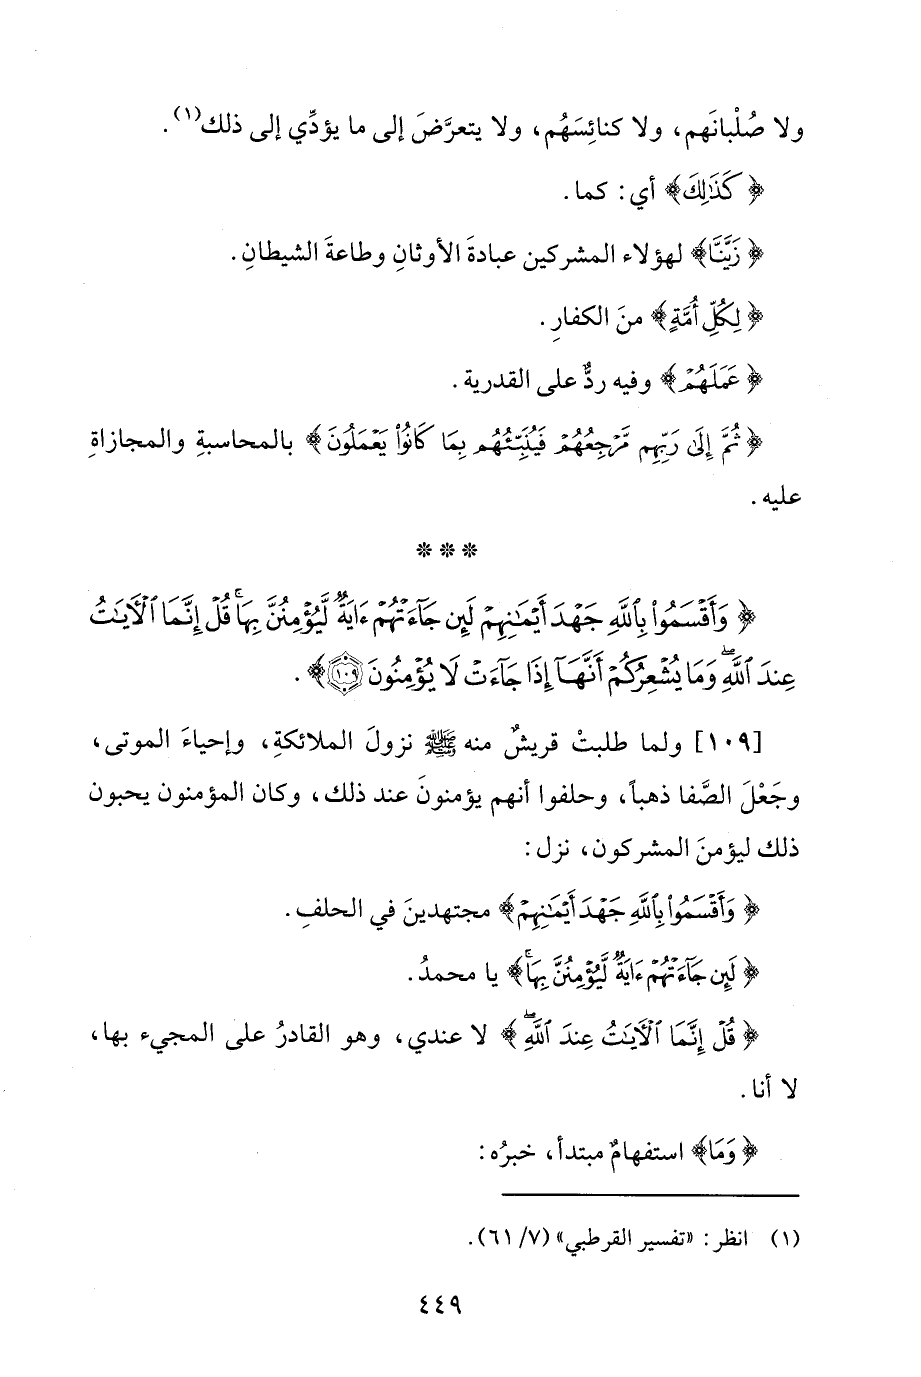 ولا صُلْبانَهم، ولا كنائِسَهُم، ولا يتعرَّضَ إلى ما يؤدِّي إلى ذلك(١).
﴿كَذَٰلِكَ﴾ أي: كما.
﴿زَيَّنَّا﴾ لهؤلاء المشركين عبادةَ الأوثانِ وطاعةَ الشيطانِ.
﴿لِكُلِّ أُمَّةٍ﴾ منَ الكفارِ.
﴿عَمَلَهُمْ﴾ وفيه ردٌّ على القدرية.
﴿ثُمَّ إِلَىٰ رَبِّهِم مَّرْجِعُهُمْ فَيُنَبِّئُهُم بِمَا كَانُواْ يَعْمَلُونَ﴾ بالمحاسبةِ والمجازاةِ
عليه.
* * *
﴿وَأَقْسَمُواْ بِاللَّهِ جَهْدَ أَيْمَٰنِهِمْ لَئِن جَآءَتْهُمْ ءَايَةٌ لَّيُؤْمِنُنَّ بِهَا ۚ قُلْ إِنَّمَا ٱلْأَيَٰتُ
عِندَ ٱللَّهِ ۖ وَمَا يُشْعِرُكُمْ أَنَّهَآ إِذَا جَآءَتْ لَا يُؤْمِنُونَ ١٠٩﴾.
[١٠٩] ولما طلبتْ قريشٌ منه ﷺ نزولَ الملائكةِ، وإحياءَ الموتى،
وجَعْلَ الصَّفا ذهباً، وحلفوا أنهم يؤمنونَ عند ذلك، وكان المؤمنون يحبون
ذلك ليؤمنَ المشركون، نزل:
﴿وَأَقْسَمُواْ بِاللَّهِ جَهْدَ أَيْمَٰنِهِمْ﴾ مجتهدينَ في الحلفِ.
﴿لَئِن جَآءَتْهُمْ ءَايَةٌ لَّيُؤْمِنُنَّ بِهَا ۚ﴾ يا محمدُ.
﴿قُلْ إِنَّمَا ٱلْأَيَٰتُ عِندَ ٱللَّهِ ۖ﴾ لا عندي، وهو القادرُ على المجيء بها،
لا أنا.
﴿وَمَا﴾ استفهامٌ مبتدأ، خبرُه:
(١) انظر: «تفسير القرطبي» (٧/ ٦١).
٤٤٩